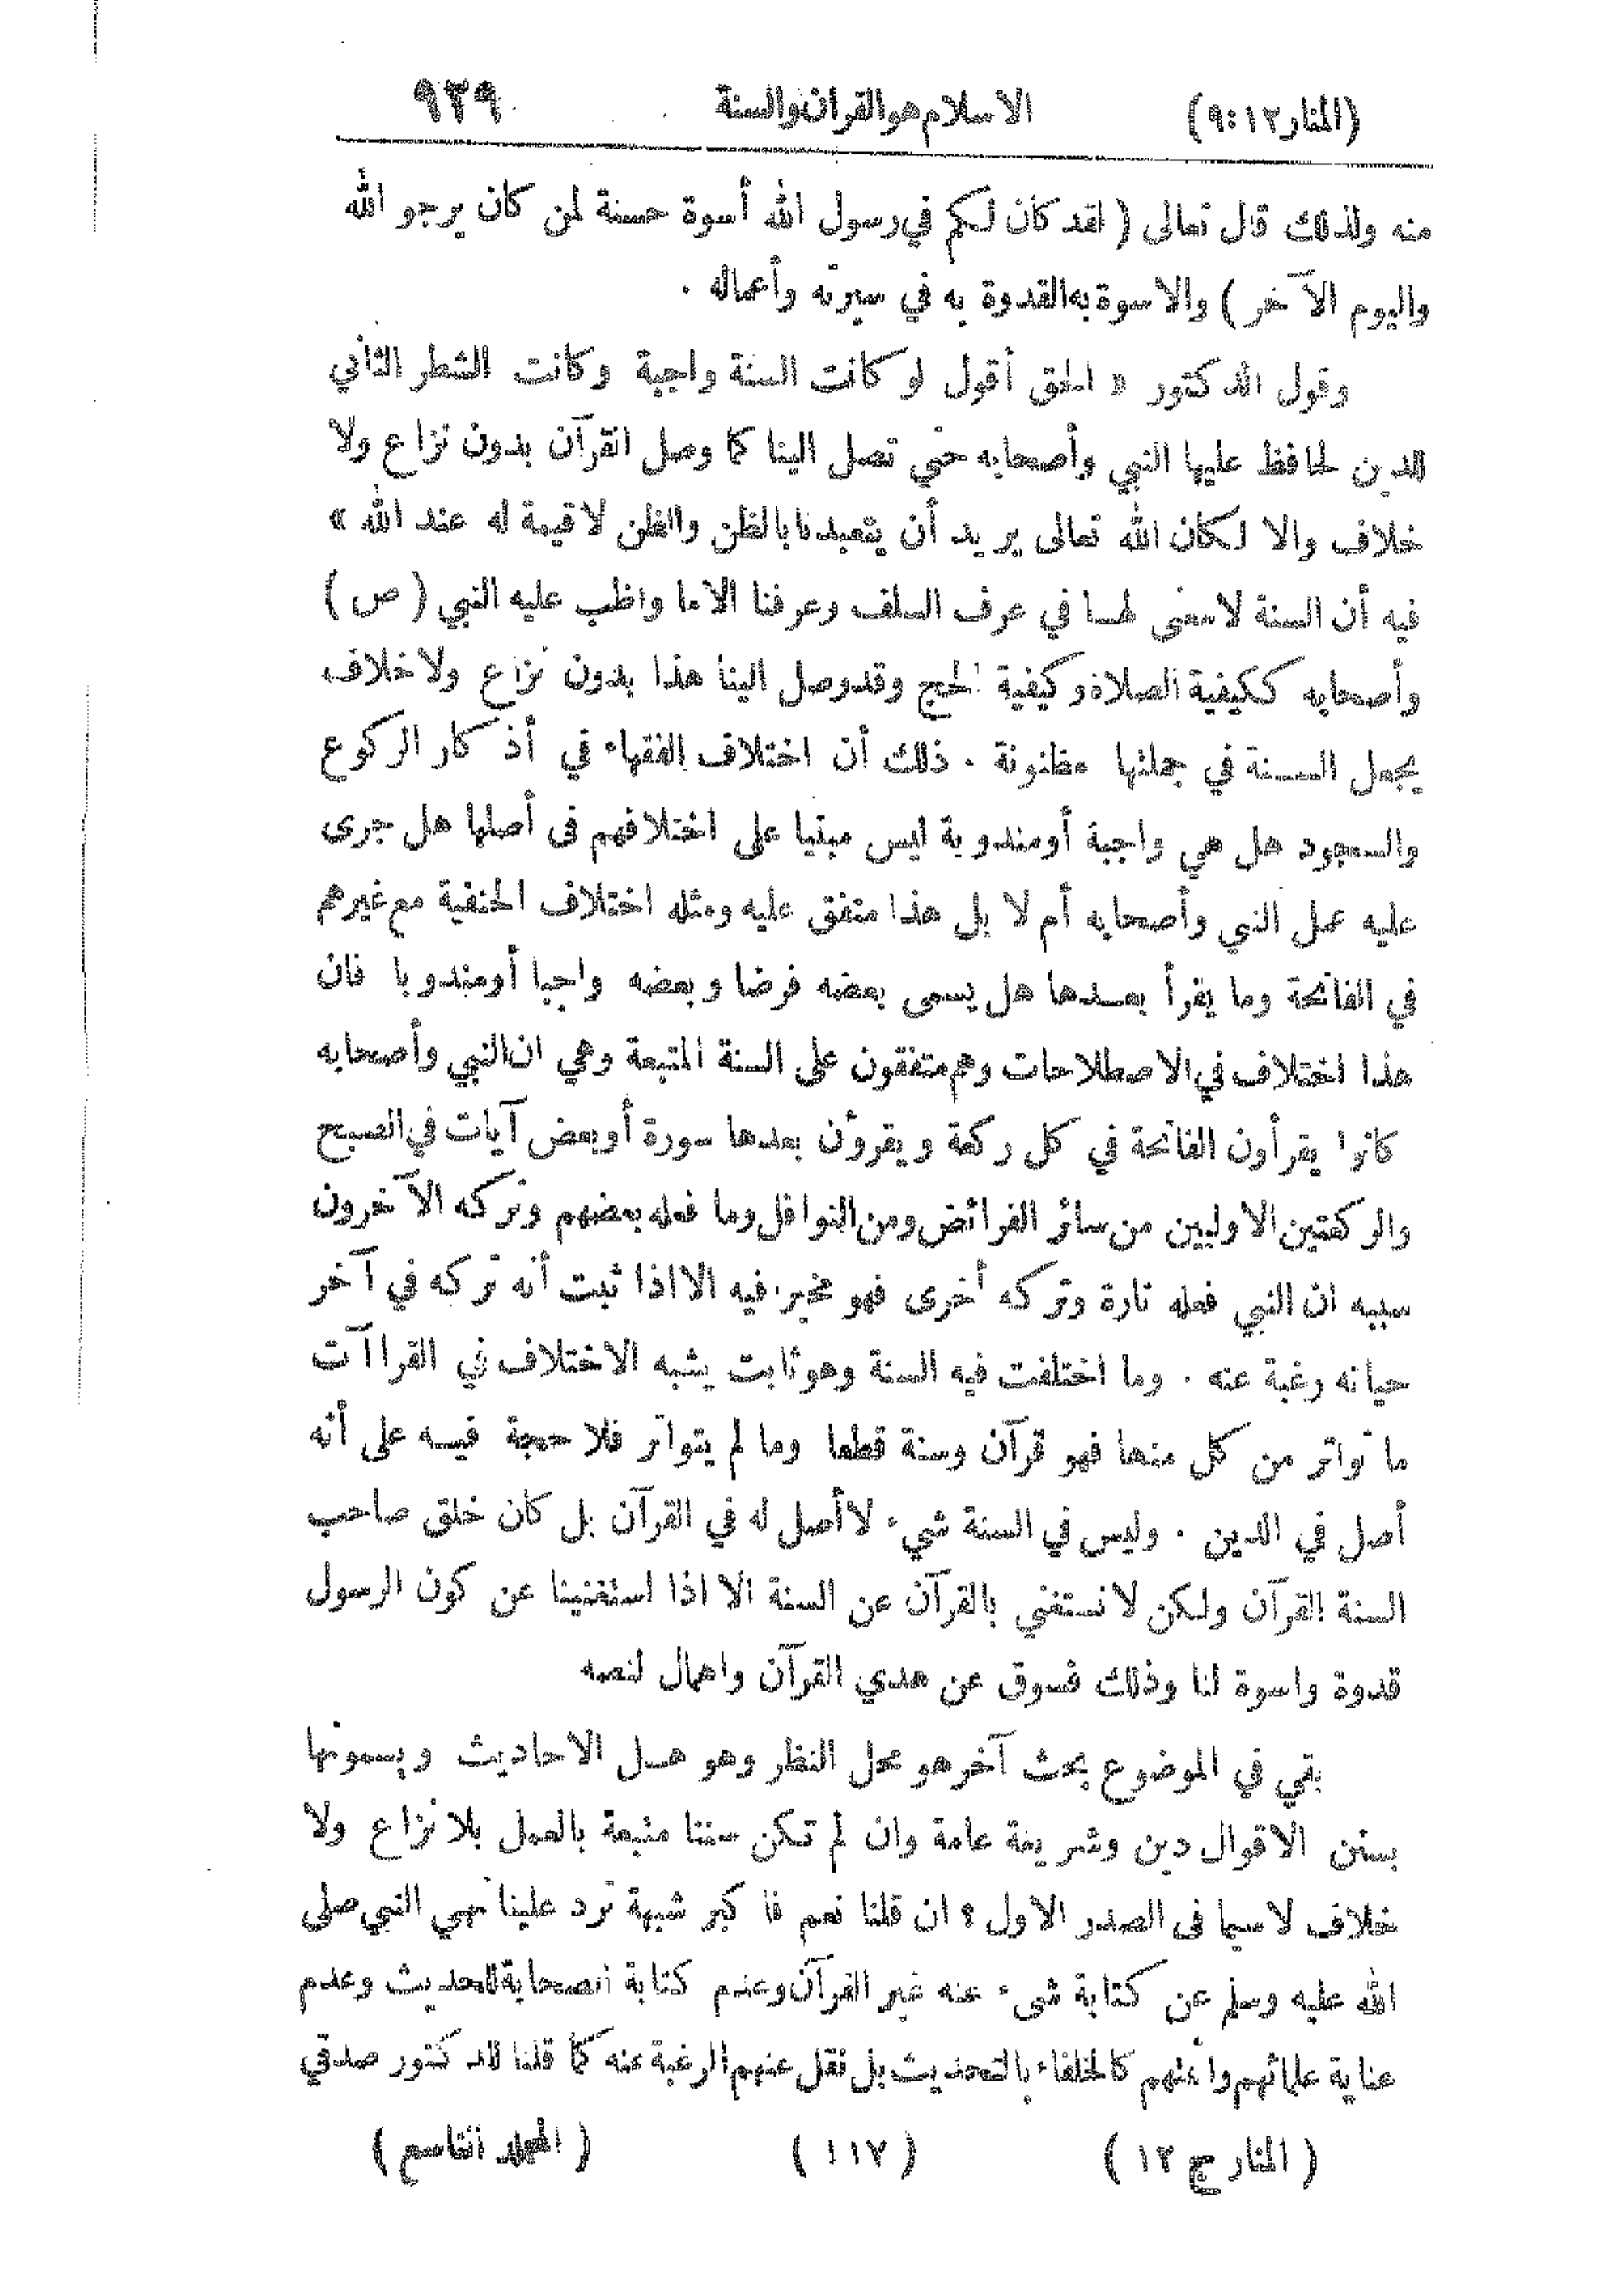 (المنار ١٢:٩) الاسلام هو القرآن والسنة ٩٢٩
منه ولذلك قال تعالى ( لقد كان لكم في رسول الله أسوة حسنة لمن كان يرجو الله
واليوم الآخر ) والاسوة به القدوة به في سيرته وأعماله .
وقول الدكتور « الحق أقول لو كانت السنة واجبة وكانت الشطر الثاني
للدين لحافظ عليها النبي وأصحابه حتى تصل الينا كما وصل القرآن بدون نزاع ولا
خلاف والا لكان الله تعالى يريد أن يتعبدنا بالظن والظن لا قيمة له عند الله »
فيه أن السنة لا معنى لها في عرف السلف وعرفنا الا ما واظب عليه النبي ( ص )
وأصحابه ككيفية الصلاة وكيفية الحج وقد وصل الينا هذا بدون نزاع ولا خلاف
يجعل السنة في جملتها مظنونة . ذلك أن اختلاف الفقهاء في أذكار الركوع
والسجود هل هي واجبة أو مندوبة ليس مبنيا على اختلافهم فى أصلها هل جرى
عليه عمل النبي وأصحابه أم لا بل هذا متفق عليه ومثله اختلاف الحنفية مع غيرهم
في الفاتحة وما يقرأ بعدها هل يسمى بعضه فرضا وبعضه واجبا أو مندوبا فان
هذا اختلاف في الاصطلاحات وهم متفقون على السنة المتبعة وهي ان النبي وأصحابه
كانوا يقرأون الفاتحة في كل ركعة ويقرؤن بعدها سورة أو بعض آيات في الصبح
والركعتين الاوليين من سائر الفرائض ومن النوافل وما فعله بعضهم وتركه الآخرون
سببه ان النبي فعله تارة وتركه أخرى فهو مخير فيه الا اذا ثبت أنه تركه في آخر
حياته رغبة عنه . وما اختلفت فيه السنة وهو ثابت يشبه الاختلاف في القراآت
ما تواتر من كل منها فهو قرآن وسنة قطعا وما لم يتواتر فلا حجة فيه على أنه
أصل في الدين . وليس في السنة شيء لا أصل له في القرآن بل كان خلق صاحب
السنة القرآن ولكن لا نستغني بالقرآن عن السنة الا اذا استغنينا عن كون الرسول
قدوة واسوة لنا وذلك فسوق عن هدي القرآن واهمال لنصه
بقي في الموضوع بحث آخر هو محل النظر وهو هل الاحاديث ويسمونها
بسنن الاقوال دين وشريعة عامة وان لم تكن سننا متبعة بالعمل بلا نزاع ولا
خلاف لاسيما فى الصدر الاول ؟ ان قلنا نعم فاكبر شبهة ترد علينا نهي النبي صلى
الله عليه وسلم عن كتابة شيء عنه غير القرآن وعدم كتابة الصحابة للحديث وعدم
عناية علمائهم وأئمتهم كالخلفاء بالتحديث بل نقل عنهم الرغبة عنه كما قلنا للدكتور صدقي
( المنار ج ١٢ ) ( ١١٧ ) ( المجلد التاسع )